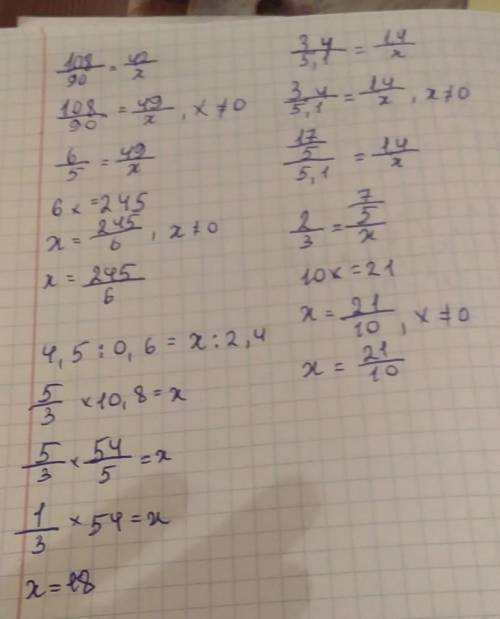 108/90 = 42/x
108/90 = 49/x, x ≠ 0
6/5 = 49/x
6x = 245
x = 245/6, x ≠ 0
x = 245/6
4,5 : 0,6 = x : 2,4
5/3 × 10,8 = x
5/3 × 54/5 = x
1/3 × 54 = x
x = 18
3,4/5,1 = 14/x
3,4/5,1 = 14/x, x ≠ 0
(17/5)/5,1 = 14/x
2/3 = (7/5)/x
10x = 21
x = 21/10, x ≠ 0
x = 21/10